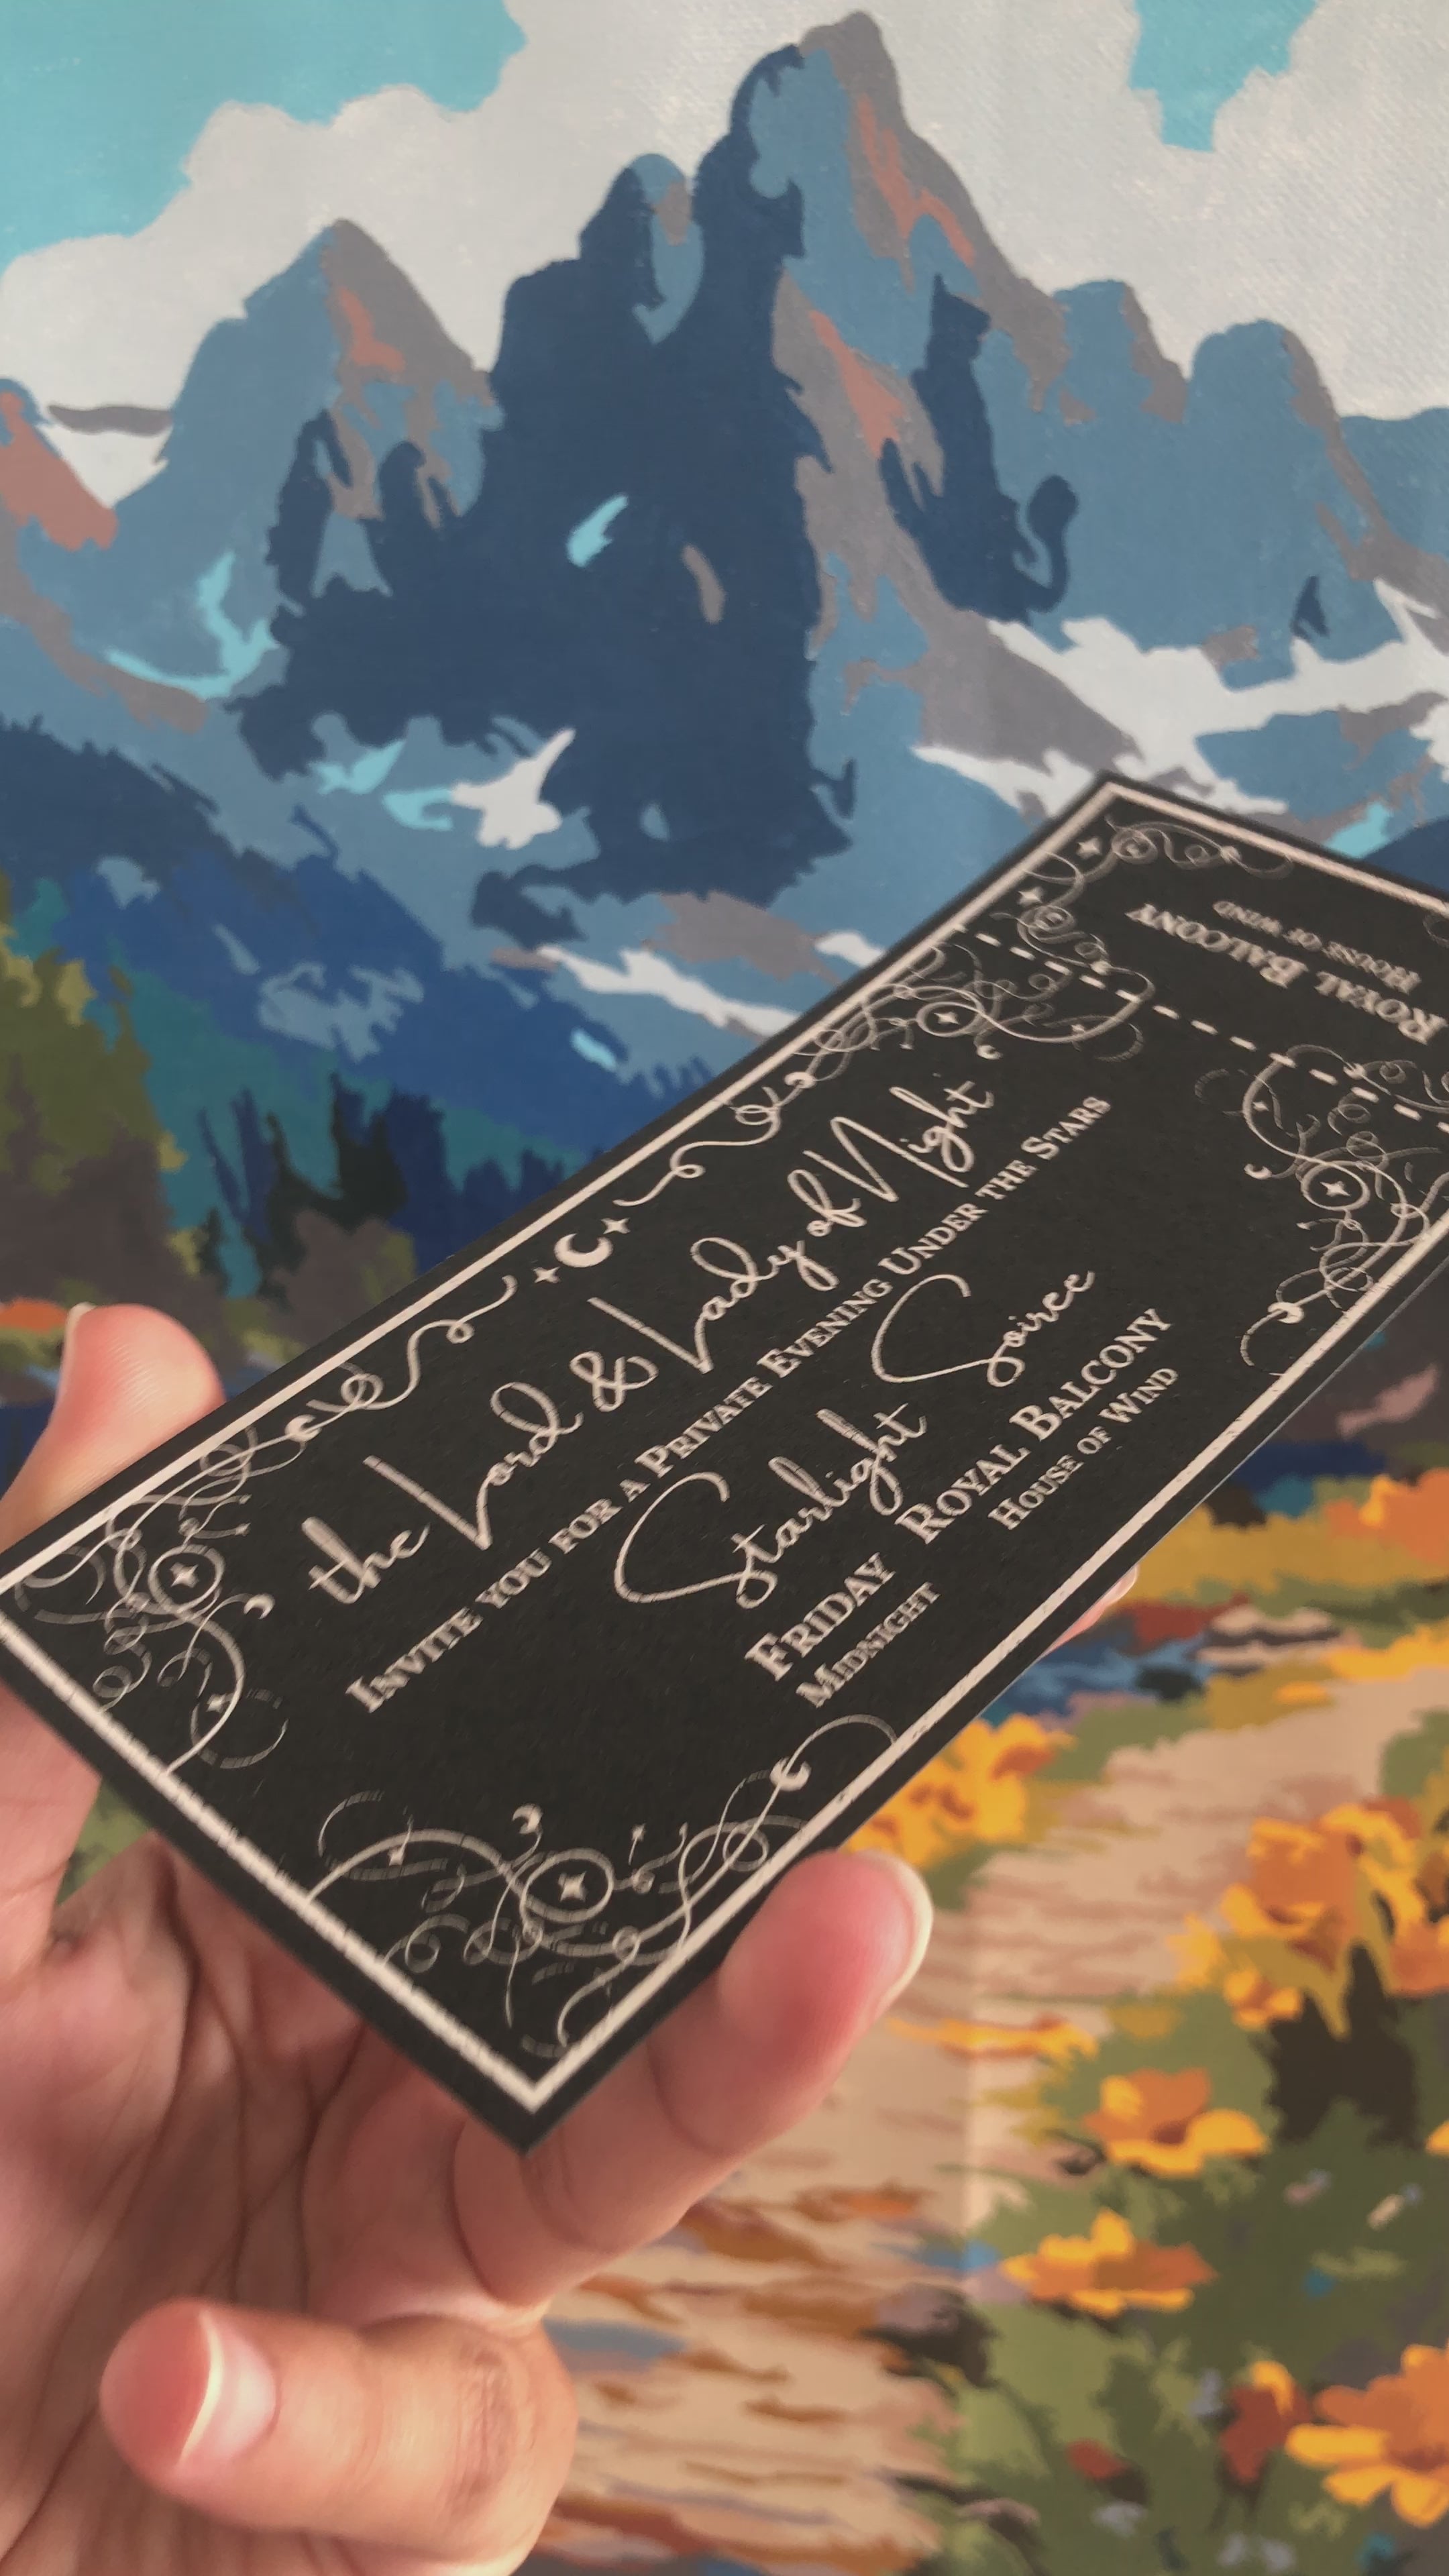 the Lord & Lady of Night
INVITE YOU FOR A PRIVATE EVENING UNDER THE STARS
Starlight Soiree
FRIDAY ROYAL BALCONY
MIDNIGHT HOUSE OF WIND
ROYAL BALCONY
HOUSE OF WIND